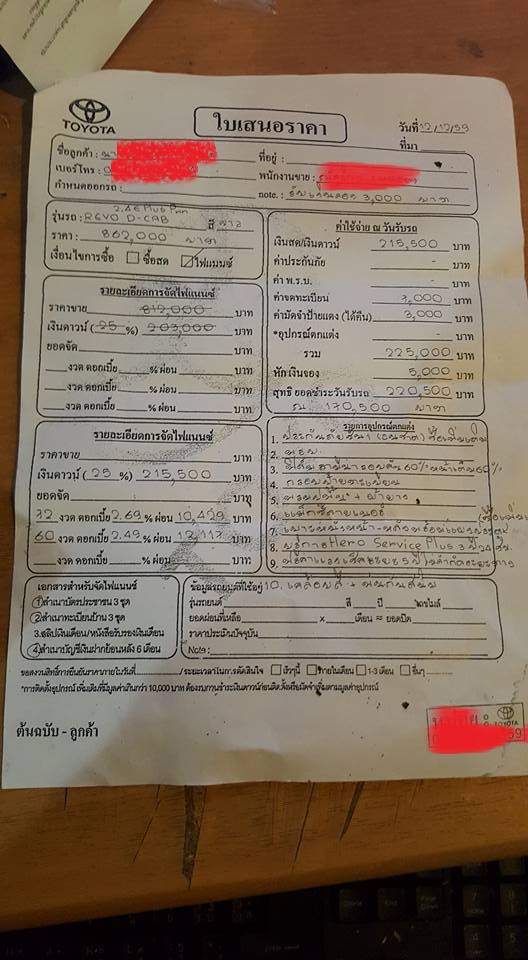 TOYOTA
ใบเสนอราคา
วันที่ 12/12/59
ที่มา
ชื่อลูกค้า :
ที่อยู่ :
เบอร์โทร :
พนักงานขาย :
กำหนดออกรถ :
note. : 3,000 บาท
2.4E Plus
รุ่นรถ : REVO D-CAB สี ขาว
ราคา : 862,000 บาท
เงื่อนไขการซื้อ ซื้อสด ไฟแนนซ์
ค่าใช้จ่าย ณ วันรับรถ
เงินสด/เงินดาวน์ 215,500 บาท
ค่าประกันภัย - บาท
ค่า พ.ร.บ. - บาท
ค่าจดทะเบียน 3,000 บาท
ค่ามัดจำป้ายแดง (ได้คืน) 3,000 บาท
*อุปกรณ์ตกแต่ง - บาท
รวม 225,000 บาท
หัก เงินจอง 5,000 บาท
สุทธิ ยอดชำระวันรับรถ 220,500 บาท
170,500 บาท
รายละเอียดการจัดไฟแนนซ์
ราคาขาย 812,000 บาท
เงินดาวน์ (25 %) 203,000 บาท
ยอดจัด บาท
งวด ดอกเบี้ย % ผ่อน บาท
งวด ดอกเบี้ย % ผ่อน บาท
งวด ดอกเบี้ย % ผ่อน บาท
รายละเอียดการจัดไฟแนนซ์
ราคาขาย บาท
เงินดาวน์ (25 %) 215,500 บาท
ยอดจัด บาท
72 งวด ดอกเบี้ย 2.69 % ผ่อน 10,429 บาท
60 งวด ดอกเบี้ย 2.49 % ผ่อน 12,117 บาท
งวด ดอกเบี้ย % ผ่อน บาท
รายการอุปกรณ์ตกแต่ง
1. ประกันภัยชั้น 1
2. พรบ.
3. ฟิล์ม 60% 60%
4. กรอบป้ายทะเบียน
5. พรมปูพื้น + ผ้ายาง
6.
7.
8. Hero Service Plus 3 ปี
9. 5 ปี
10. เคลือบสี + พ่นกันสนิม
เอกสารสำหรับจัดไฟแนนซ์
1.สำเนาบัตรประชาชน 3 ชุด
2.สำเนาทะเบียนบ้าน 3 ชุด
3.สลิปเงินเดือน/หนังสือรับรองเงินเดือน
4.สำเนาบัญชีเงินฝากย้อนหลัง 6 เดือน
ข้อมูลรถยนต์ที่ใช้อยู่
รุ่นรถยนต์ สี ปี เลขไมล์
ยอดผ่อนที่เหลือ x เดือน = ยอดปิด
ราคาประเมินปัจจุบัน
Note :
ขอสงวนสิทธิ์การยืนยันราคาภายในวันที่ / ระยะเวลาในการตัดสินใจ เร็วๆนี้ ภายในเดือน 1-3 เดือน อื่นๆ
*การติดตั้งอุปกรณ์ เพิ่มเติมที่มีมูลค่าเกินกว่า 10,000 บาท ต้องรบกวนชำระเงินดาวน์ก่อนติดตั้งหรือมัดจำเพิ่มตามมูลค่าอุปกรณ์
ต้นฉบับ - ลูกค้า
TOYOTA
59